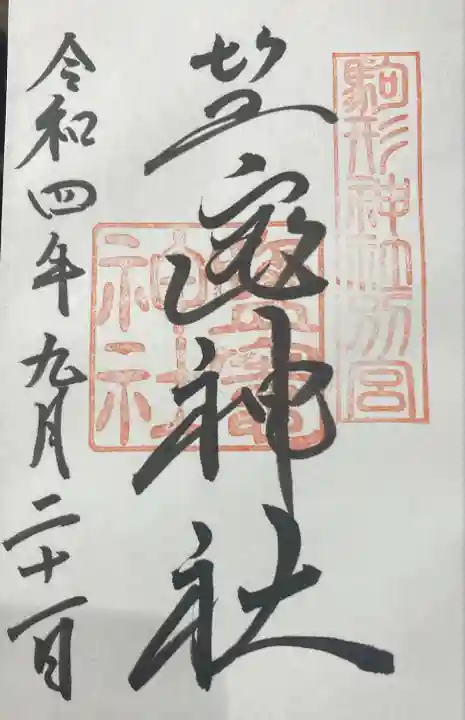 駒形神社別宮
塩竈神社
鹽竈神社
令和四年九月二十一日